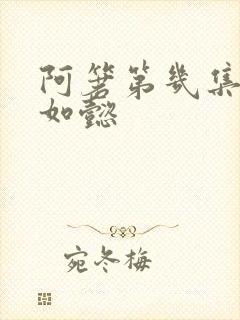 阿箬第几集
如懿
宛冬梅